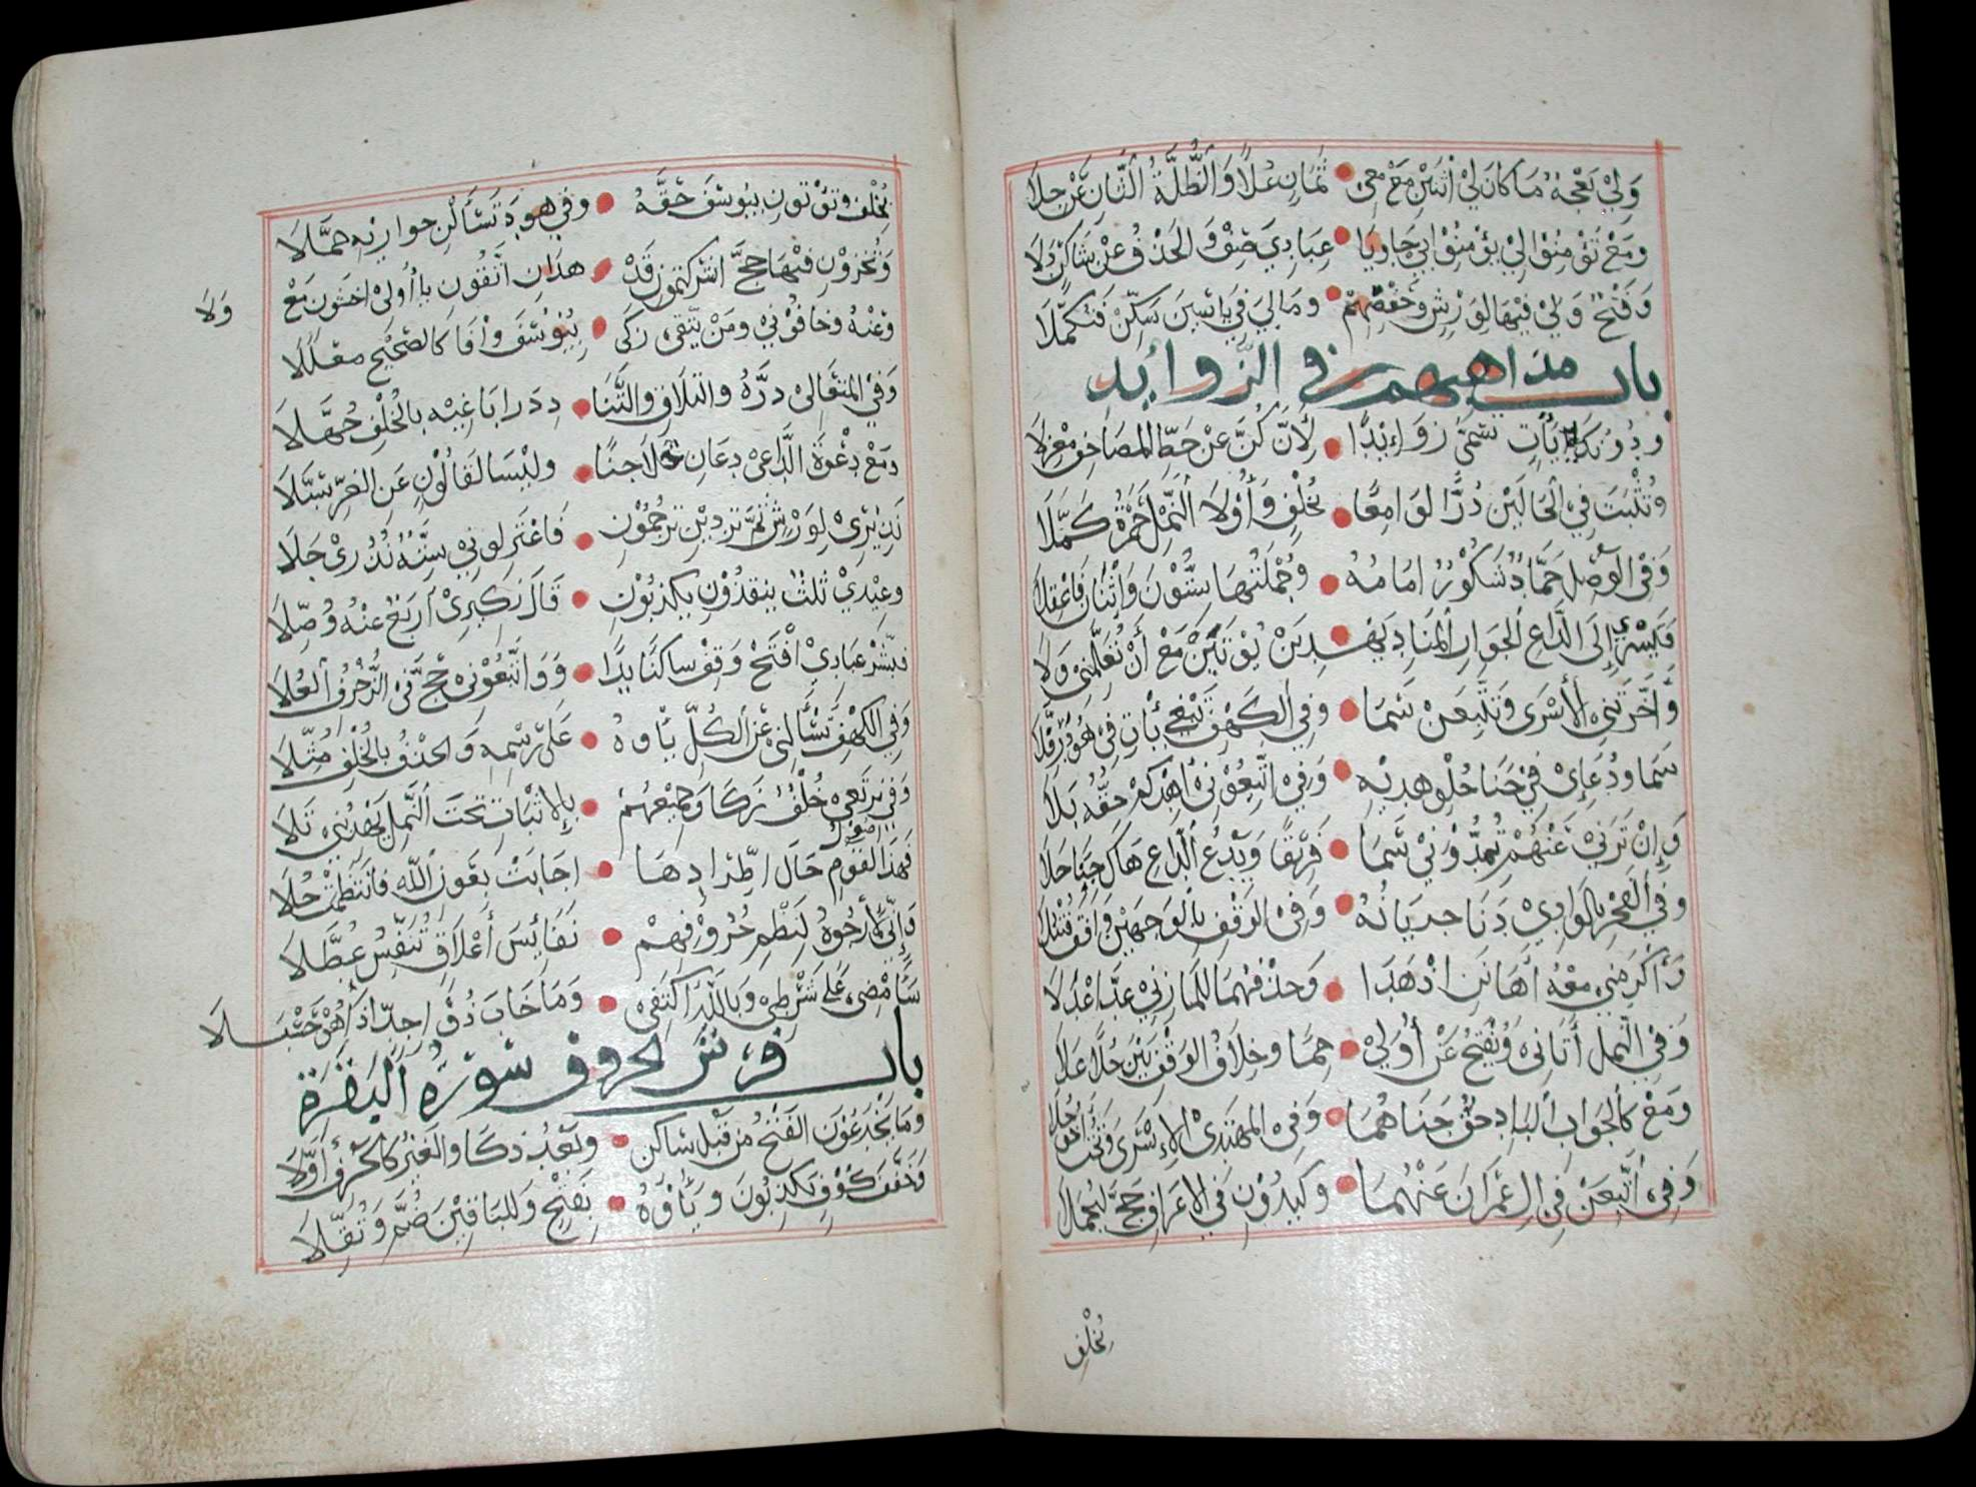 ولي نعجة ما كان لي اثنين مع معي • ثمان علا والظلة الثان عن جلا
ومع تؤمنوا لي يؤمنوا بي جا ويا • عبادي صف والحذف عن شاكر دلا
وفتح ولي فيها لورش وحفصهم • وما لي في ياسين سكن فتكملا
باب مذاهبهم في الزوايد
ودونك ياات تسمى زوايدا • لأن كن عن خط المصاحف معزلا
وتثبت في الحالين درا لوامعا • بخلف وأولى النمل حمزة كملا
وفي الوصل حماد شكور امامه • وجملتها ستون واثنان فاعقلا
فيسري إلى الداع الجوار المناد يهديـن • يؤتين مع أن تعلمني ولا
وأخرتني الأسرى وتتبعن سما • وفي الكهف نبغي يأت في هود رفلا
سما ودعاءي في جنا حلو هديه • وفي اتبعوني أهدكم حقه بلا
وإن ترني عنهم تمدونني سما • فريقا ويدع الداع هاك جنا حلا
وفي الفجر بالوادي دنا جريانه • وفي الوقف بالوجهين وافق قنبلا
وأكرمني معه أهانن اذ هدا • وحذفهما للمازني عد اعدلا
وفي النمل أتاني ويفتح عن أولي • حما وخلاف الوقف بين حلا علا
ومع كالجواب الباد حق جناهما • وفي المهتدي الاسرى وتحت أخو حلا
وفي اتبعن في ال عمران عنهما • وكيدون في الاعراف حج ليحملا
بخلف
بخلف وتؤتون بيوسف حقه • وفي هود تسألن حواريه جملا
وتخزون فيها حج اشركتمون قد • هدان اتقون يا أولي اخشون مع
ولا
وعنه وخافوني ومن يتقي زكى • بيوسف وافا كالصحيح معللا
وفي المتعالي دره والتلاق والتنا • د درا باغيه بالخلف جهلا
ومع دعوة الداعي دعان حلا جنا • وليسا لقالون عن الغر سبلا
نذيري لورش ثم تردين ترجمون • فاعتزلوني ستة نذري جلا
وعيدي ثلث ينقذون يكذبون • قال نكيري أربع عنه وصلا
فبشر عبادي افتح وقف ساكنا يدا • وواتبعوني حج في الزخرف العلا
وفي الكهف تسألني عن الكل ياوه • على رسمه والحذف بالخلف مثلا
وفي نرتعي خلف زكا وجميعهم • بالاثبات تحت النمل يهديني تلا
فهذا اصول القوم حال اطرادها • اجابت بعون الله فانتظمت حلا
وإني لأرجوه لنظم حروفهم • نفايس أعلاق تنفس عطلا
سأمضي على شرطي وبالله اكتفي • وما خاب ذو جد اذا هو حسبلا
باب فرش الحروف سورة البقرة
وما يخدعون الفتح من قبل ساكن • وبعد ذكا والغير كالحرف أولا
وخفف كوف يكذبون وياؤه • بفتح وللباقين ضم وثقلا